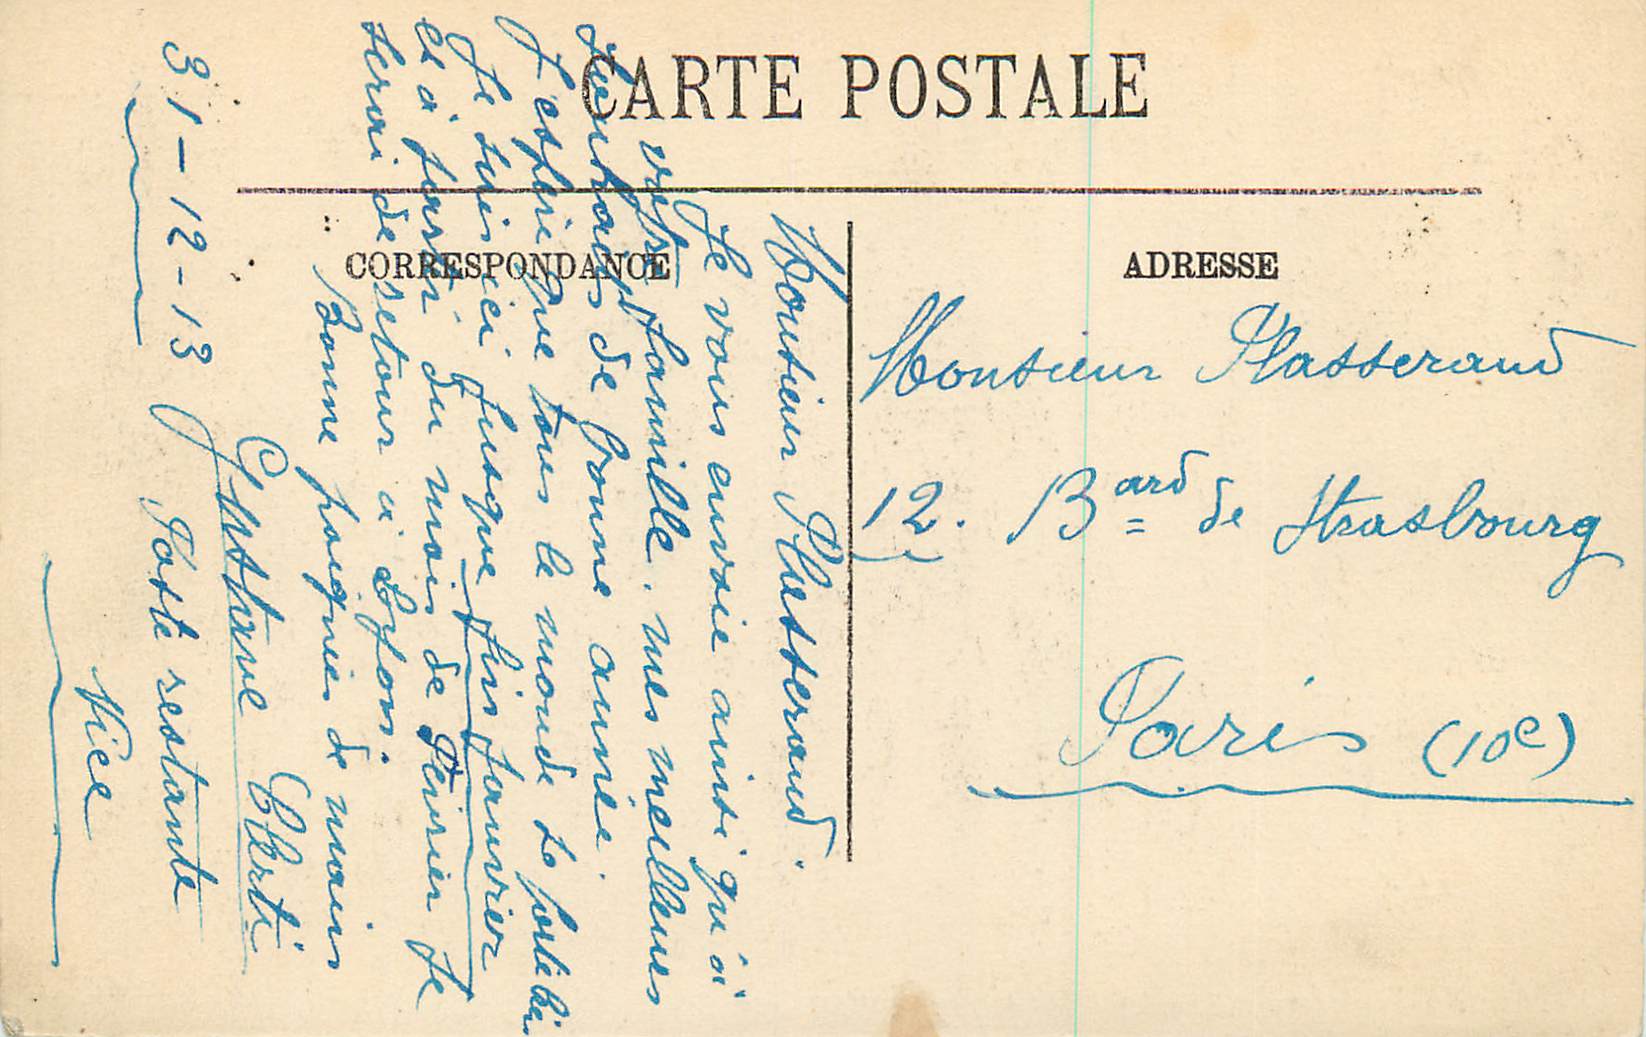 CARTE POSTALE
CORRESPONDANCE
ADRESSE
Monsieur Plasseraud
12. Bard de Strasbourg
Paris (10e)
Monsieur Plasseraud.
Je vous envoie ainsi qu'à
votre famille. mes meilleurs
souhaits de bonne année.
J'espère que tous le monde se porte bien
Je suis ici jusque fin janvier
et à partir du mois de Février je
serai de retour à Lyon.
Bonne poignée de main
Gustave Eberti
31-12-13
Poste restante
Nice